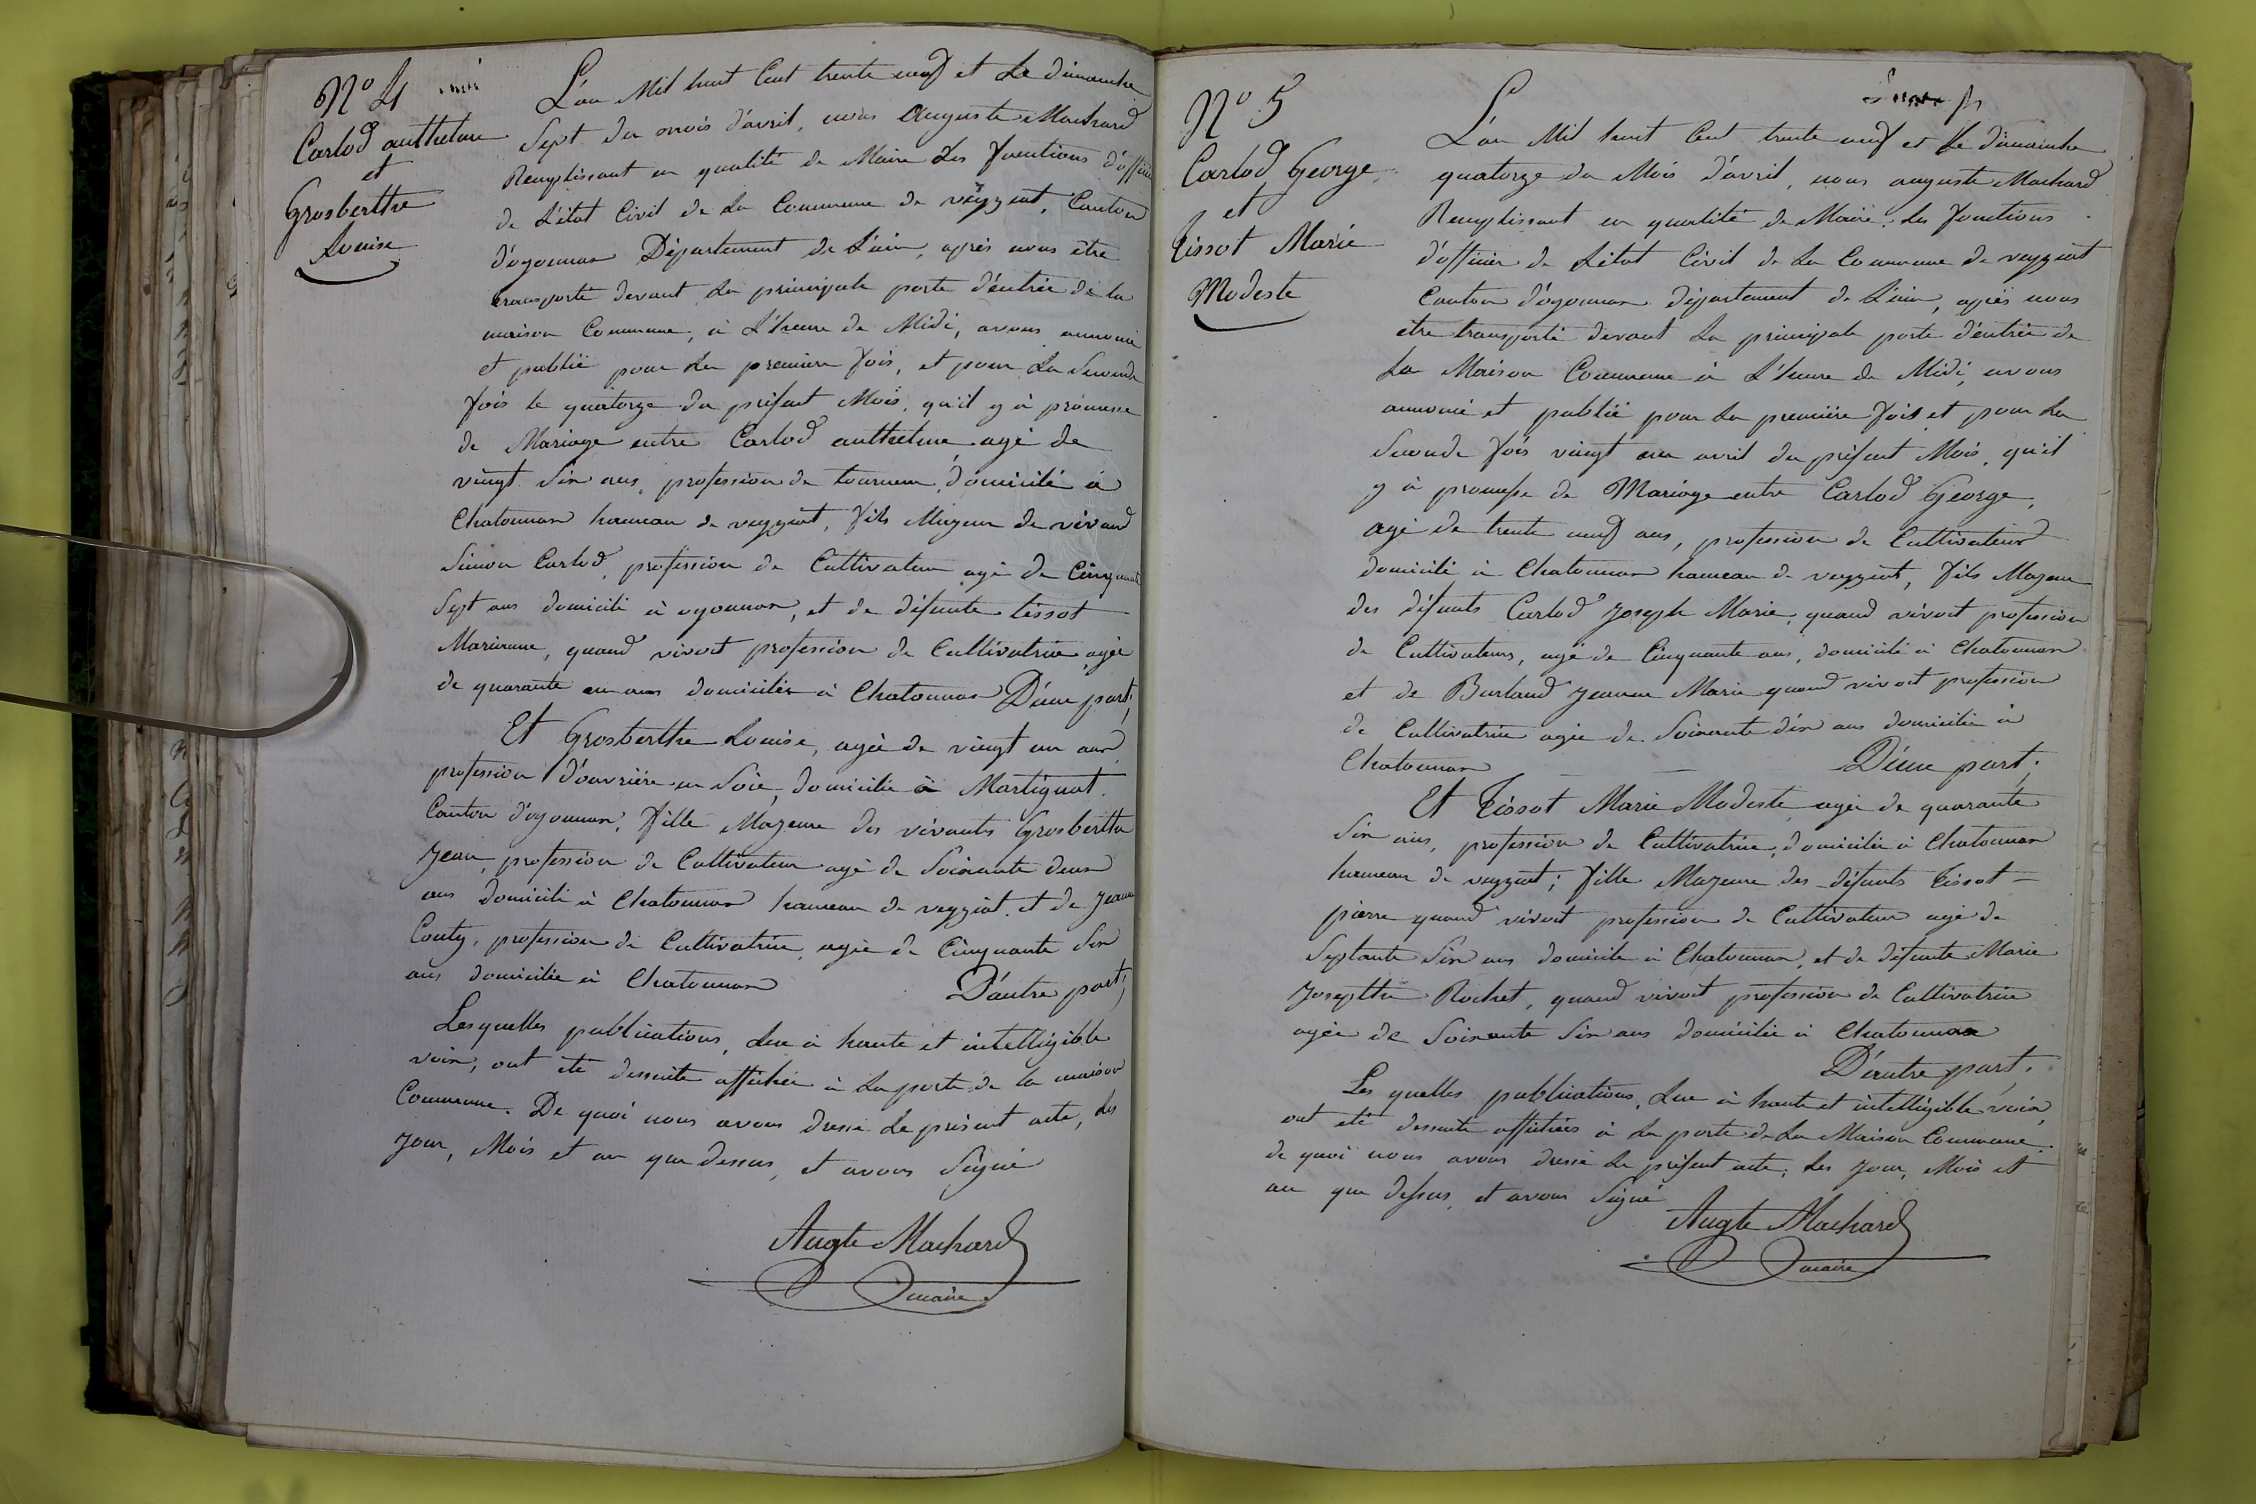 N° 4
Carlod anthelme
et
Grosberthe
Louise
L'an Mil huit Cent trente neuf et Le dimanche
Sept du mois d'avril, nous Auguste Machard
Remplissant en qualité de Maire Les fonctions d'officier
de L'état Civil de La Commune de veyziat, Canton
d'oyonnax Département de L'ain, après nous être
transporté devant La principale porte d'entrée de la
maison Commune, à L'heure de Midi, avons annoncé
et publié pour La premiere fois, et pour La Seconde
fois le quatorze du présent Mois, qu'il y à promesse
de Mariage entre Carlod anthelme, agé de
vingt Six ans, profession de tourneur, domicilié à
Chatonnax hameau de veyziat, fils Majeur de vivant
Simon Carlod, profession de Cultivateur agé de Cinquante
Sept ans domicilié à oyonnax, et de défunte tissot
Marianne, quand vivoit profession de Cultivatrice agée
de quarante un ans domiciliée à Chatonnax D'une part;
Et Grosberthe Louise, agée de vingt un ans
profession d'ouvrière en Soie, domiciliée à Martignat
Canton d'oyonnax, fille Majeure des vivants Grosberthe
Jean, profession de Cultivateur agé de Soixante deux
ans domicilié à Chatonnax hameau de veyziat, et de Jeanne
Couty, profession de Cultivatrice, agée de Cinquante Six
ans domiciliée à Chatonnax D'autre part;
Lesquelles publications, Lue à haute et intelligible
voix, ont été dessuite affichée à La porte de la maison
Commune. De quoi nous avons dressé Le présent acte, Les
Jour, Mois et an que dessus, et avons Signé
Augte Machard
maire
N° 5
Carlod George
et
tissot Marie
Modeste
L'an Mil huit Cent trente neuf et Le dimanche
quatorze du Mois d'avril, nous auguste Machard
Remplissant en qualité de Maire Les fonctions
d'officier de L'état Civil de La Commune de veyziat
Canton d'oyonnax département de L'ain, après nous
être transporté devant La principale porte d'entrée de
La Maison Commune à L'heure de Midi, avons
annoncé et publié pour La première fois et pour La
Seconde fois vingt un avril du présent Mois, qu'il
y à promesse de Mariage entre Carlod George,
agé de trente neuf ans, profession de Cultivateur
domicilié à Chatonnax hameau de veyziat, fils Majeur
des défunts Carlod Joseph Marie, quand vivoit profession
de Cultivateurs, agé de Cinquante ans, domicilié à Chatonnax
et de Burlaud Jeanne Marie quand vivoit profession
de Cultivatrice agée de Soixante dix ans domiciliée à
Chatonnax D'une part;
Et Tissot Marie Modeste agée de quarante
Six ans, profession de Cultivatrice, domiciliée à Chatonnax
hameau de veyziat; fille Majeure des défunts Tissot
pierre quand vivoit profession de Cultivateur agé de
Septante Six ans domicile à Chatonnax, et de défunte Marie
Josephte Rochet, quand vivoit profession de Cultivatrice
agée de Soixante Six ans domiciliée à Chatonnax
D'autre part.
Les quelles publications, Lue à haute et intelligible voix,
ont été dessuite affichées à La porte de La Maison Commune.
de quoi nous avons dressé Le présent acte, Les Jour, Mois et
an que dessus, et avons Signé
Augte Machard
maire